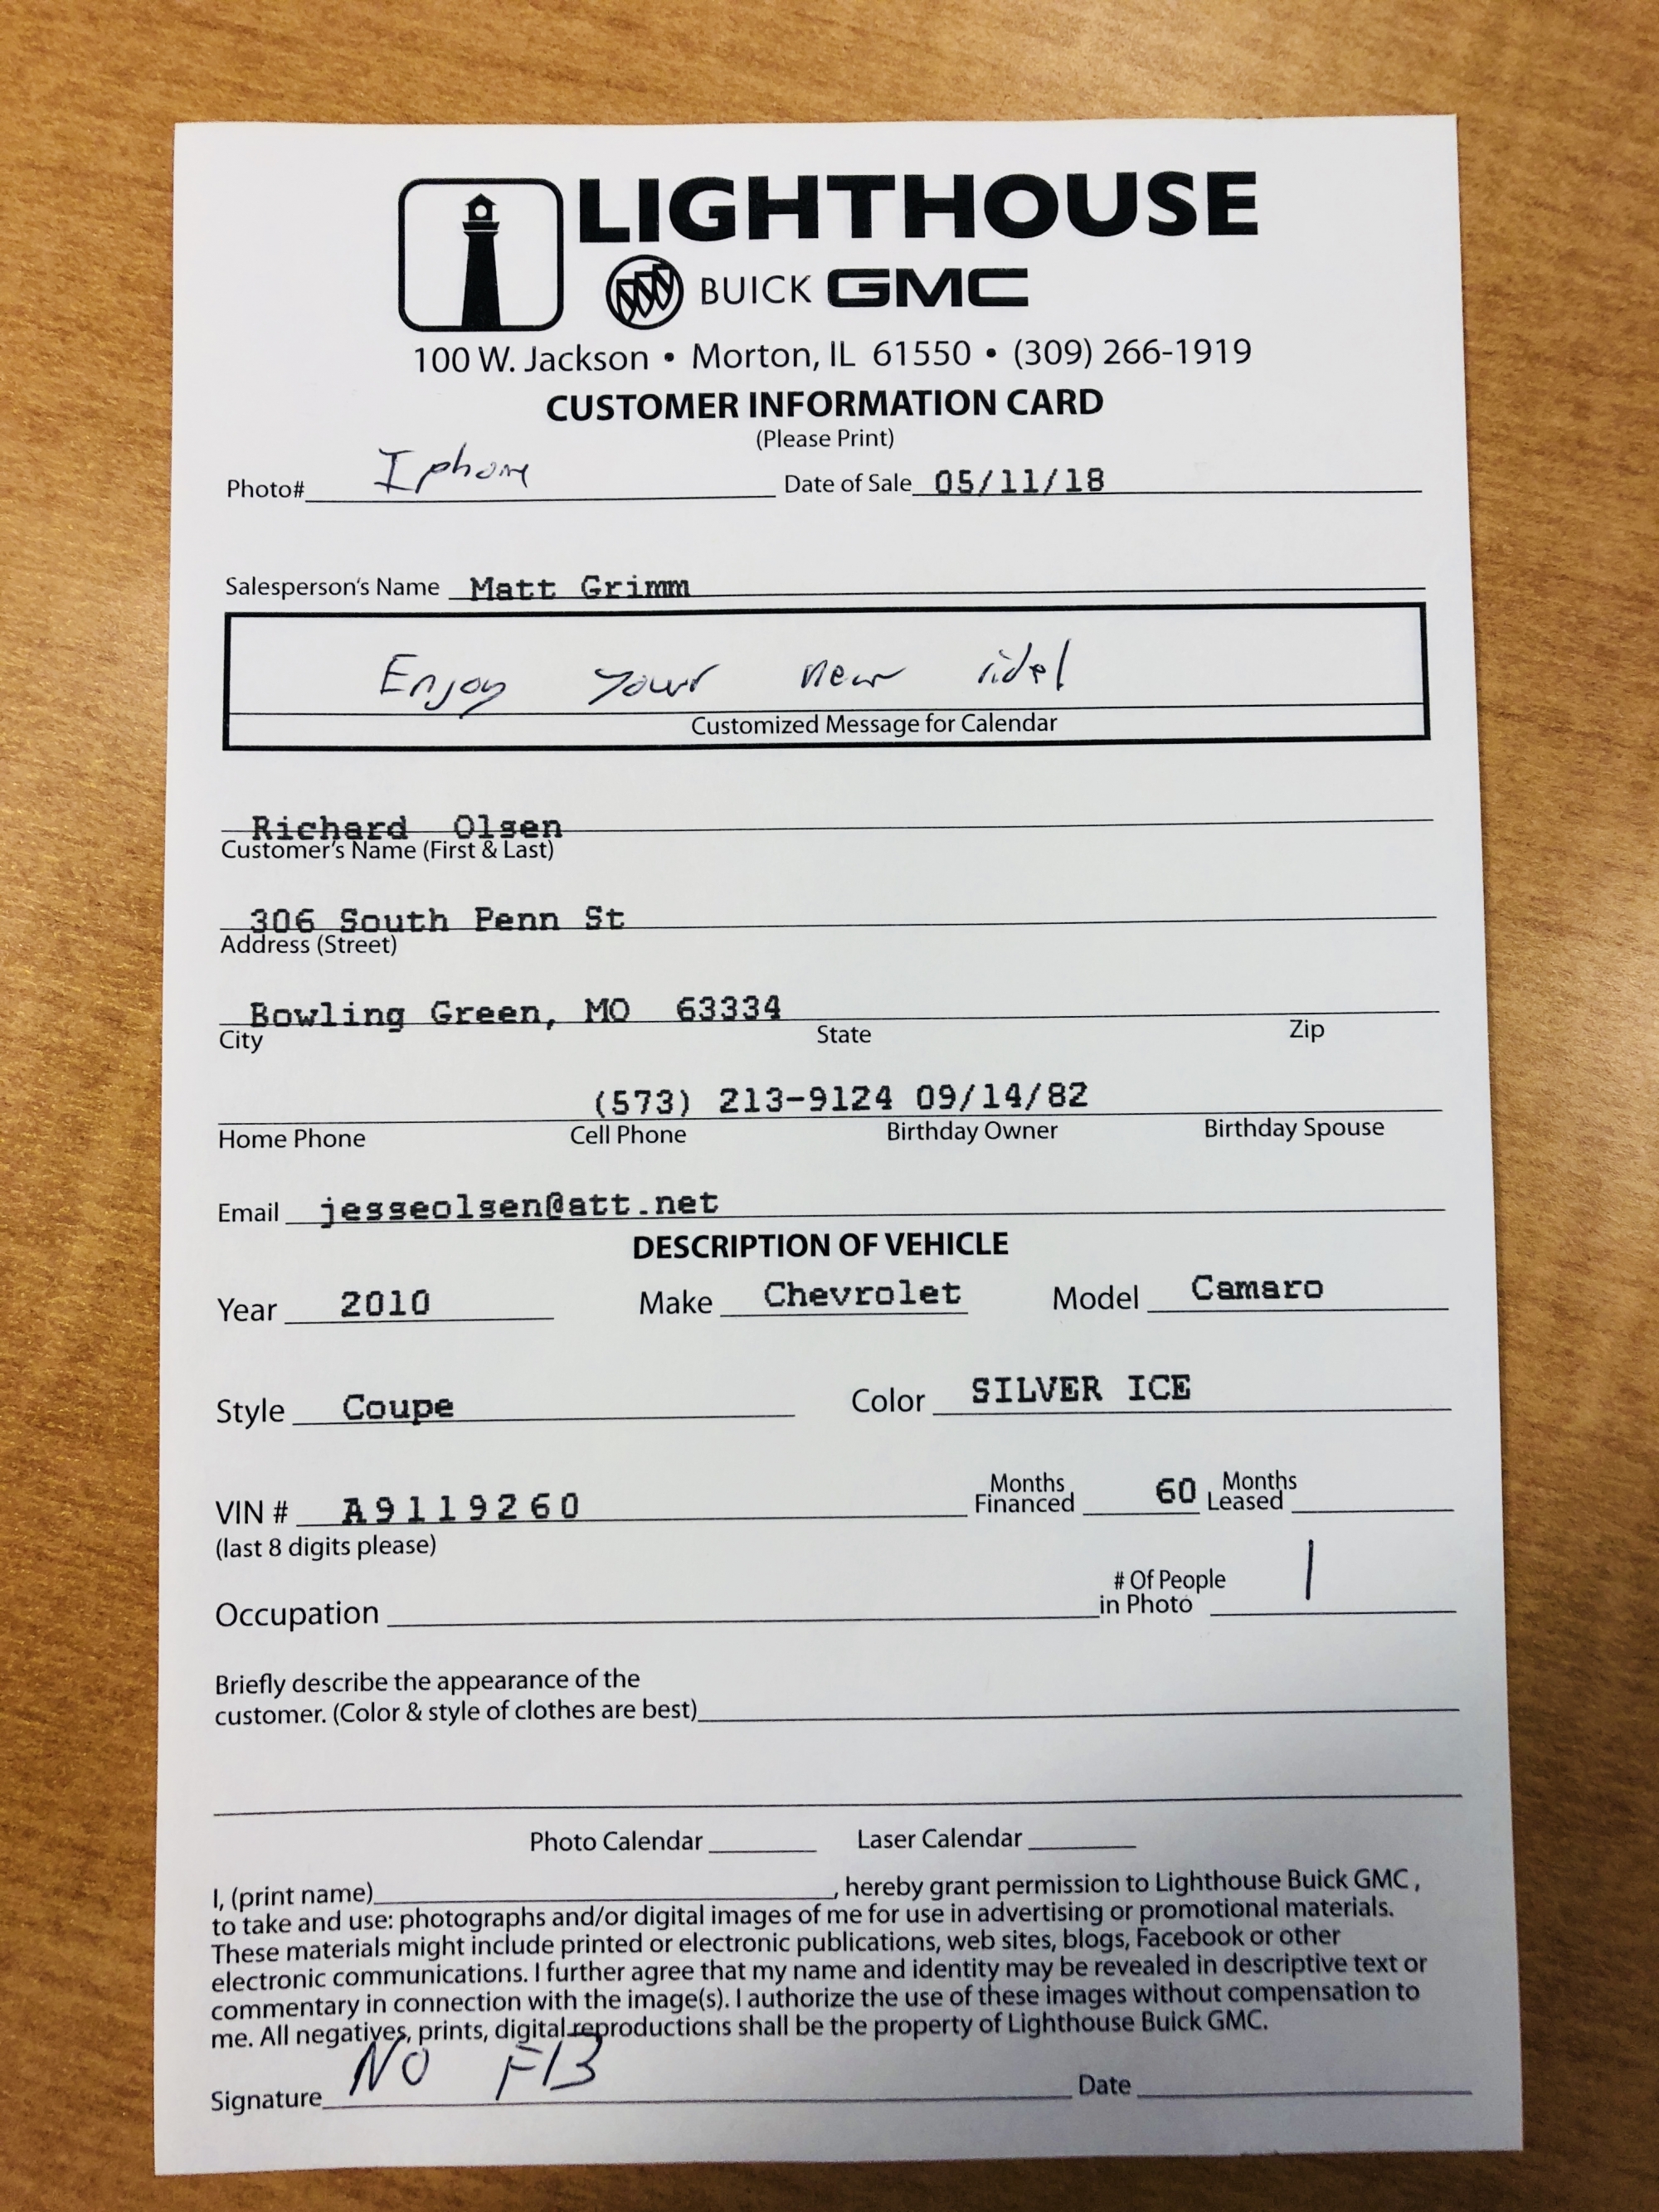 LIGHTHOUSE
BUICK GMC
100 W. Jackson • Morton, IL 61550 • (309) 266-1919
CUSTOMER INFORMATION CARD
(Please Print)
Photo# Iphone Date of Sale 05/11/18
Salesperson's Name Matt Grimm
Enjoy your new ride!
Customized Message for Calendar
Richard Olsen
Customer's Name (First & Last)
306 South Penn St
Address (Street)
Bowling Green, MO 63334
City State Zip
(573) 213-9124 09/14/82
Home Phone Cell Phone Birthday Owner Birthday Spouse
Email jesseolsen@att.net
DESCRIPTION OF VEHICLE
Year 2010 Make Chevrolet Model Camaro
Style Coupe Color SILVER ICE
VIN # A9119260 Months Financed 60 Months Leased
(last 8 digits please)
Occupation # Of People in Photo 1
Briefly describe the appearance of the
customer. (Color & style of clothes are best)
Photo Calendar Laser Calendar
I, (print name), hereby grant permission to Lighthouse Buick GMC,
to take and use: photographs and/or digital images of me for use in advertising or promotional materials.
These materials might include printed or electronic publications, web sites, blogs, Facebook or other
electronic communications. I further agree that my name and identity may be revealed in descriptive text or
commentary in connection with the image(s). I authorize the use of these images without compensation to
me. All negatives, prints, digital reproductions shall be the property of Lighthouse Buick GMC.
Signature NO FB Date